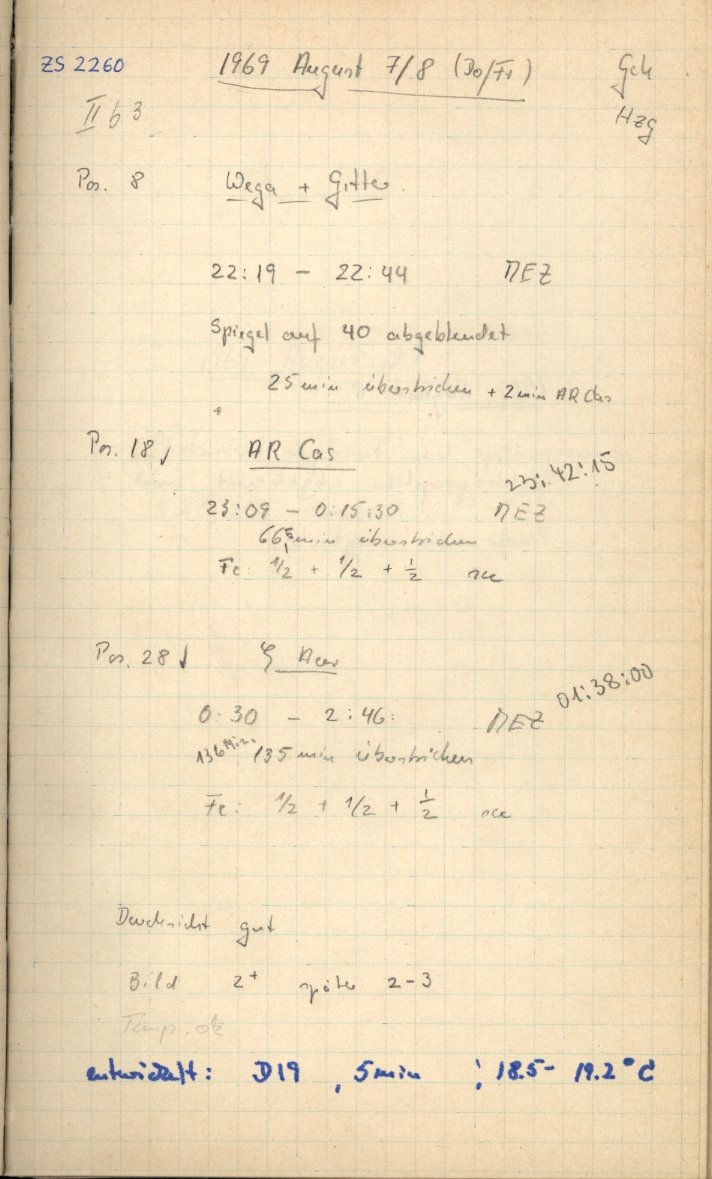 ZS 2260 1969 August 7/8 (Do/Fr) Gck
II b 3 Hzg
Pos. 8 Wega + Gitter
22:19 - 22:44 MEZ
Spiegel auf 40 abgeblendet
25 min überstrichen + 2 min AR Cas
Pos. 18 AR Cas
23:42:15
23:09 - 0:15:30 MEZ
66,5 min überstrichen
Fe: 1/2 + 1/2 + 1/2 sec
Pos. 28
01:38:00
0:30 - 2:46: MEZ
136 Min. 135 min überstrichen
Fe: 1/2 + 1/2 + 1/2 sec
Durchsicht gut
Bild 2+ später 2-3
Temp. ok
entwickelt: D19, 5 min ; 18.5 - 19.2°C